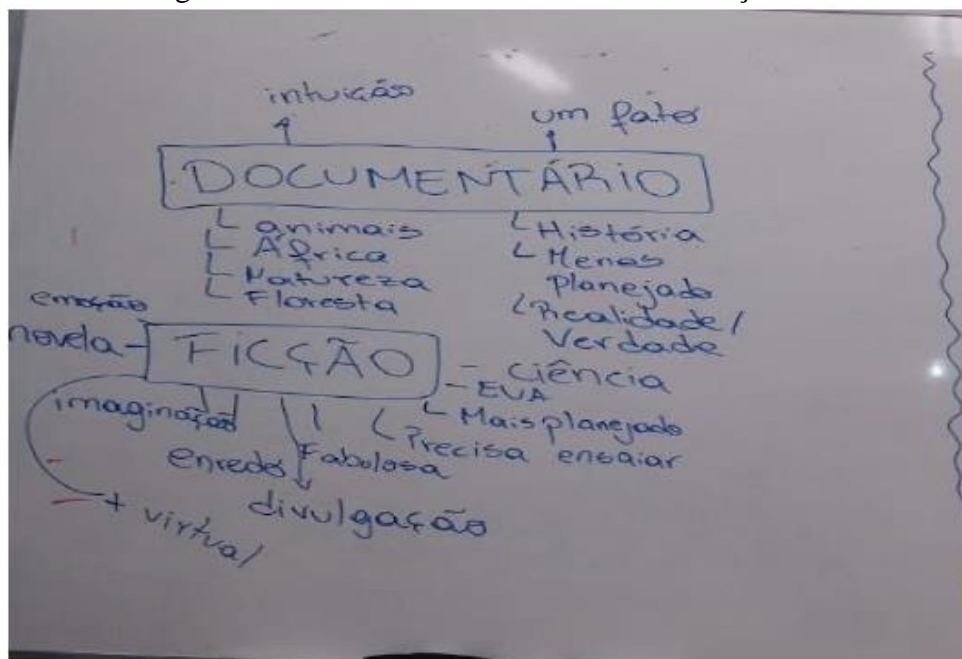 intuição
um fato
DOCUMENTÁRIO
animais
África
Natureza
Floresta
História
Menos
planejado
Realidade/
Verdade
emoção
novela
FICÇÃO
ciência
EVA
Mais planejado
Precisa ensaiar
imaginação
enredo
Fabulosa
divulgação
+ virtual